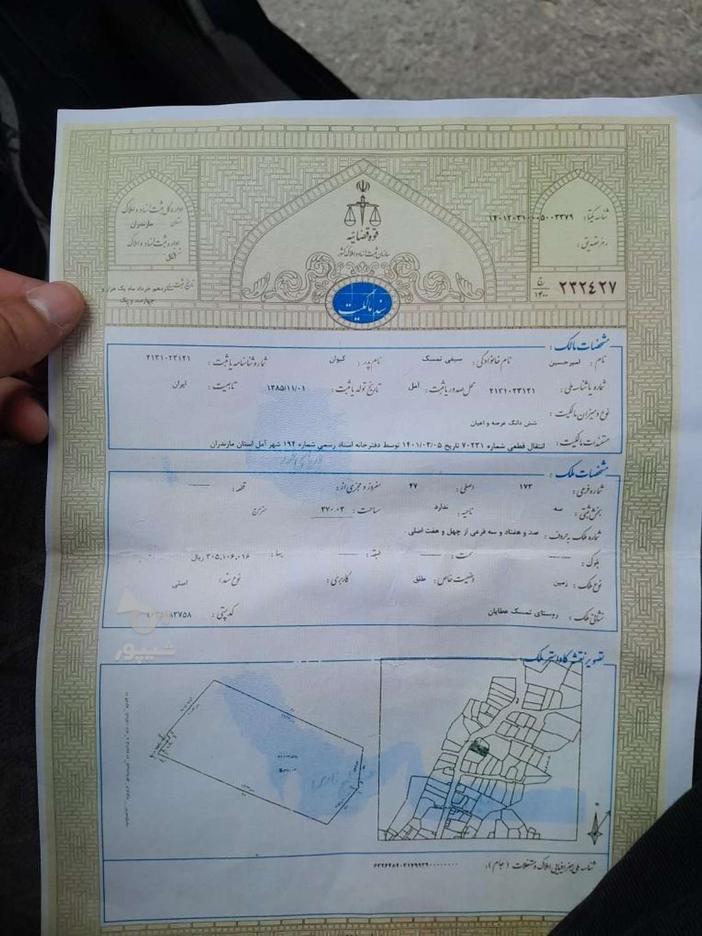 اداره کل ثبت اسناد و املاک
استان مازندران
اداره ثبت اسناد و املاک
آمل
تاریخ ثبت: شانزدهم خرداد ماه یک هزار و
چهارصد و یک
قوه قضائیه
سازمان ثبت اسناد و املاک کشور
سند مالکیت
شناسه یکتا:
رمز تصدیق:
۲۳۲٤۲۷ ج ۱۴۰۰
مشخصات مالک:
نام: امیرحسین نام خانوادگی: سیفی تمسک نام پدر: کیوان شماره شناسنامه یا ثبت: ۲۱۳۱۰۲۳۱۲۱
شماره یا شناسه ملی: ۲۱۳۱۰۲۳۱۲۱ محل صدور یا ثبت: آمل تاریخ تولد یا ثبت: ۱۳۸۵/۱۱/۰۱ تابعیت: ایران
نوع و میزان مالکیت: شش دانگ عرصه و اعیان
مستندات مالکیت: انتقال قطعی شماره ۷۰۲۳۱ تاریخ ۱۴۰۱/۰۳/۰۵ توسط دفترخانه اسناد رسمی شماره ۱۹۴ شهر آمل استان مازندران
مشخصات ملک:
شماره فرعی: ۱۷۳ اصلی: ۴۷ مفروز و مجزی از: قطعه:
بخش ثبتی: سه ناحیه: ندارد مساحت: ۲۷۰.۰۳ مترمربع
شماره ملک بحروف: صد و هفتاد و سه فرعی از چهل و هفت اصلی
بلوک: سمت: طبقه: بهاء: ۳۰۵,۱۰۶,۰۱۶ ریال
نوع ملک: زمین وضعیت خاص: طلق کاربری: نوع سند: اصلی
نشانی ملک: روستای تمسک عطایان کدپستی:
شیپور
تصویر نقشه کاداستر ملک
شناسه ملی جغرافیایی املاک و مستغلات (جام):